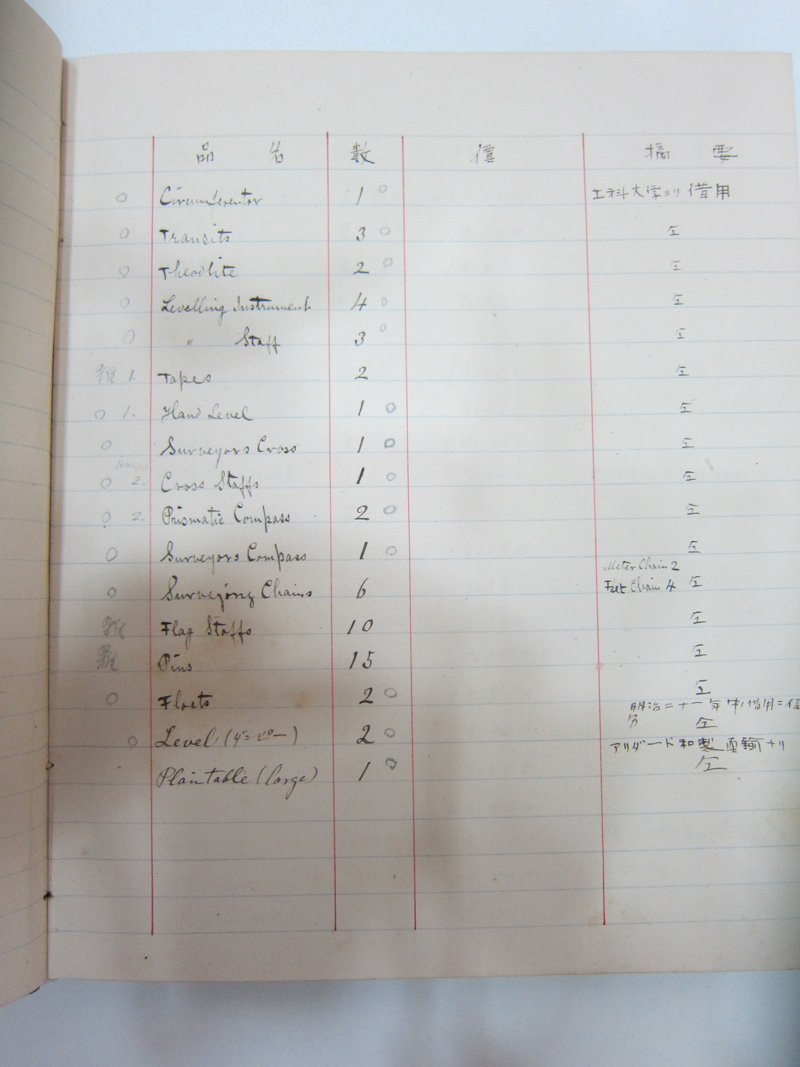 品 名 数 価 摘 要
○ Circumferentor 1 ○ 工科大学ヨリ借用
○ Transits 3 ○ 仝
○ Theodlite 2 ○ 仝
○ Levelling Instrument 4 ○ 仝
○ 〃 Staff 3 ○ 仝
雑 1. Tapes 2 仝
○ 1. Hand Level 1 ○ 仝
○ Surveyors Cross 1 ○ 仝
○ 2. Cross Staffs 1 ○ 仝
○ 2. Prismatic Compass 2 ○ 仝
○ Surveyors Compass 1 ○ 仝
Meter Chain 2
○ Surveying Chains 6 Feet Chain 4 仝
雑 Flag Staffs 10 仝
雑 Pins 15 仝
○ Floats 2 ○ 仝
明治二十一年中ノ借用ニ係
○ Level 2 ○ 分 仝
アリダード和製
Plantable (large) 1 ○ 仝